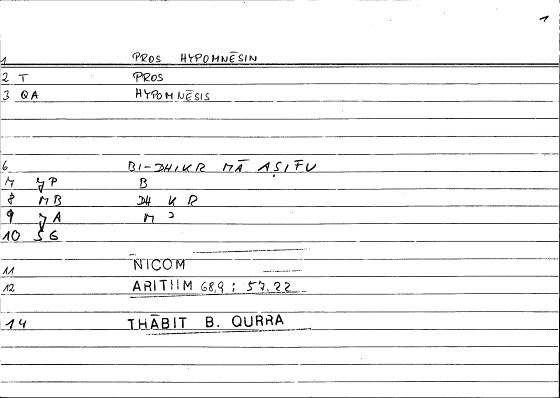 1
1 PROS HYPOMNĒSIN
2 T PROS
3 QA HYPOMNĒSIS
6 BI-DHIKR MĀ AṢIFU
7 YP B
8 MB DH K R
9 YA M Ɔ
10 SG
11 NICOM
12 ARITIIM 68,9 : 57.22
14 THĀBIT B. QURRA